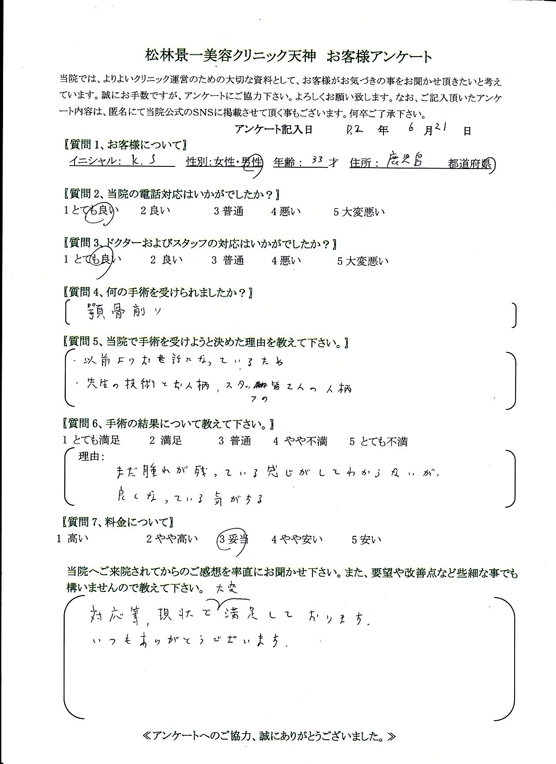 松林景一美容クリニック天神　お客様アンケート
当院では、よりよいクリニック運営のための大切な資料として、お客様がお気づきの事をお聞かせ頂きたいと考え
ています。誠にお手数ですが、アンケートにご協力下さい。よろしくお願い致します。なお、ご記入頂いたアンケ
ート内容は、匿名にて当院公式のSNSに掲載させて頂く事もございます。何卒ご了承下さい。
アンケート記入日　R2 年 6 月 21 日
【質問1、お客様について】
イニシャル： K.S　性別：女性・男性　年齢： 33 才　住所： 鹿児島　都道府県
【質問2、当院の電話対応はいかがでしたか？】
1 とても良い　2 良い　3 普通　4 悪い　5 大変悪い
【質問3、ドクターおよびスタッフの対応はいかがでしたか？】
1 とても良い　2 良い　3 普通　4 悪い　5 大変悪い
【質問4、何の手術を受けられましたか？】
顎骨削り
【質問5、当院で手術を受けようと決めた理由を教えて下さい。】
・以前よりお世話になっているため
・先生の技術とお人柄、スタッフの皆さんの人柄
【質問6、手術の結果について教えて下さい。】
1 とても満足　2 満足　3 普通　4 やや不満　5 とても不満
理由：
まだ腫れが残っている感じがしてわからないが、
良くなっている気がする
【質問7、料金について】
1 高い　2 やや高い　3 妥当　4 やや安い　5 安い
当院へご来院されてからのご感想を率直にお聞かせ下さい。また、要望や改善点など些細な事でも
構いませんので教えて下さい。
対応等、現状で大変満足しております。
いつもありがとうございます。
≪アンケートへのご協力、誠にありがとうございました。≫